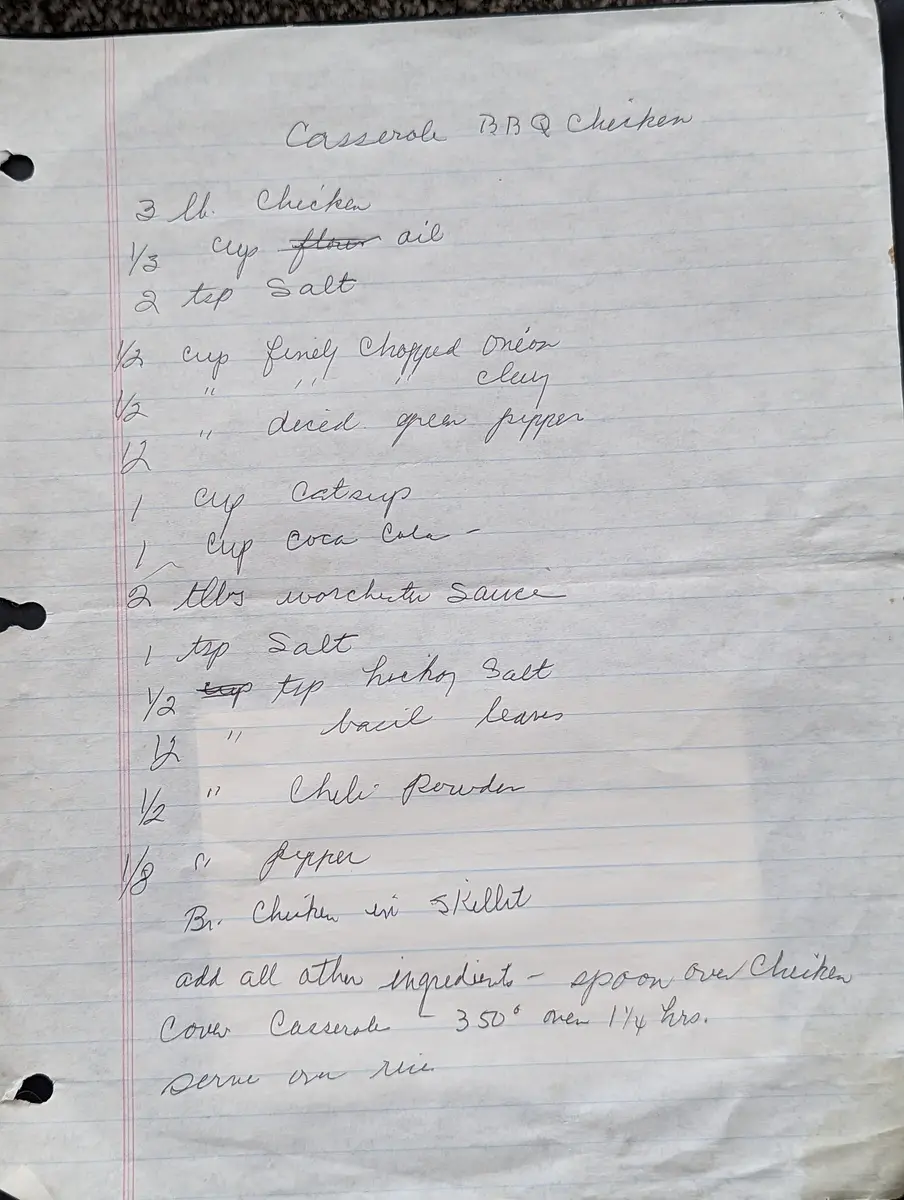 Casserole BBQ Chicken
3 lb. Chicken
1/3 cup ~~flour~~ oil
2 tsp Salt
1/2 cup finely chopped onion
1/2 " " " clery
1/2 " diced green pepper
1 cup Catsup
1 cup Coca Cola -
2 tlbs worchester Sauce
1 tsp Salt
1/2 ~~cup~~ tsp hickory Salt
1/2 " basil leaves
1/2 " Chili Powder
1/8 " pepper
Br. Chicken in Skillet
add all other ingredients - spoon over Chicken
Cover Casserole - 350° oven 1 1/4 hrs.
serve over rice